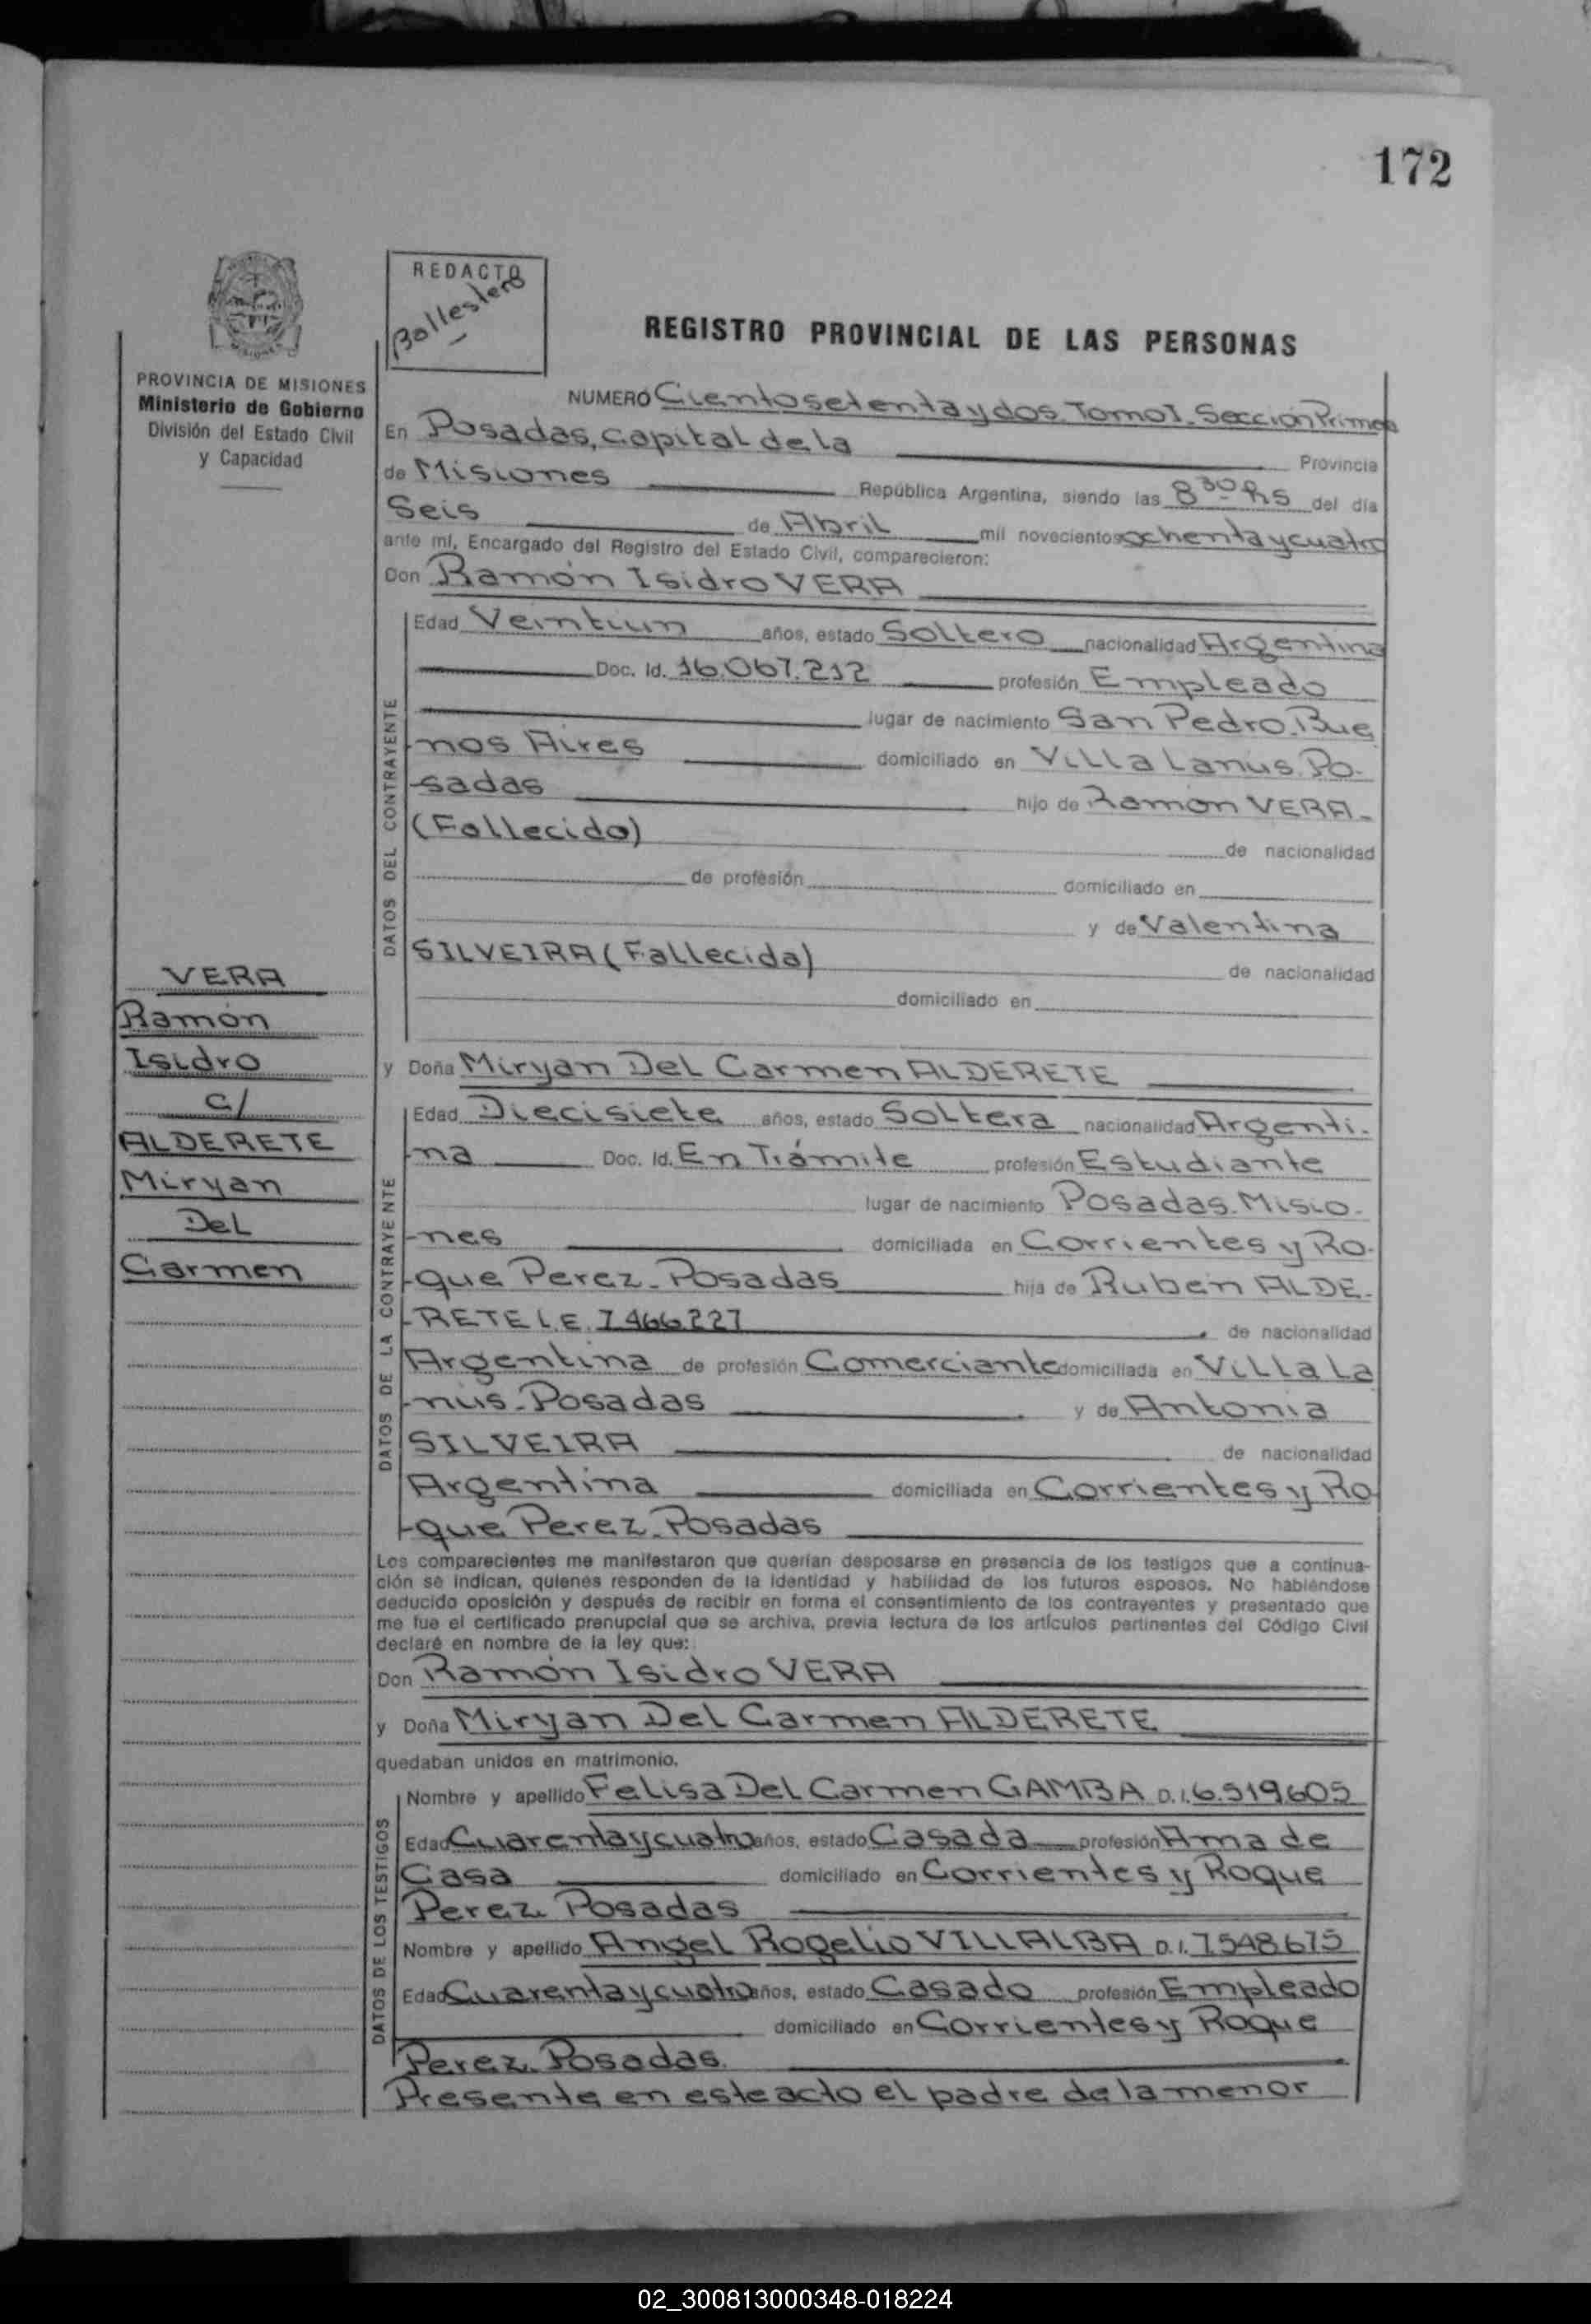 172
REDACTO
Ballestero
REGISTRO PROVINCIAL DE LAS PERSONAS
PROVINCIA DE MISIONES
Ministerio de Gobierno
División del Estado Civil
y Capacidad
NUMERO Ciento setenta y dos. Tomo I. Sección Primera
En Posadas, capital de la Provincia
de Misiones República Argentina, siendo las 8 30 hs del día
Seis de Abril mil novecientos ochenta y cuatro
ante mí, Encargado del Registro del Estado Civil, comparecieron:
Don Ramón Isidro VERA
DATOS DEL CONTRAYENTE
Edad Veintiun años, estado Soltero nacionalidad Argentina
Doc. Id. 16.067.212 profesión Empleado
lugar de nacimiento San Pedro. Bue
nos Aires domiciliado en Villa Lanús. Po-
-sadas hijo de Ramón VERA-
(Fallecido) de nacionalidad
de profesión domiciliado en
y de Valentina
SILVEIRA (Fallecida) de nacionalidad
domiciliado en
VERA
Ramón
Isidro
c/
ALDERETE
Miryan
Del
Carmen
y Doña Miryan Del Carmen ALDERETE
DATOS DE LA CONTRAYENTE
Edad Diecisiete años, estado Soltera nacionalidad Argenti-
-na Doc. Id. En Trámite profesión Estudiante
lugar de nacimiento Posadas. Misio-
-nes domiciliada en Corrientes y Ro-
-que Perez. Posadas hija de Ruben ALDE-
-RETE L.E. 7.466.227 de nacionalidad
Argentina de profesión Comerciante domiciliada en Villa La
-nús. Posadas y de Antonia
SILVEIRA de nacionalidad
Argentina domiciliada en Corrientes y Ro
-que Perez. Posadas
Los comparecientes me manifestaron que querían desposarse en presencia de los testigos que a continua-
ción se indican, quienes responden de la identidad y habilidad de los futuros esposos. No habiéndose
deducido oposición y después de recibir en forma el consentimiento de los contrayentes y presentado que
me fue el certificado prenupcial que se archiva, previa lectura de los artículos pertinentes del Código Civil
declaré en nombre de la ley que:
Don Ramón Isidro VERA
y Doña Miryan Del Carmen ALDERETE
quedaban unidos en matrimonio.
DATOS DE LOS TESTIGOS
Nombre y apellido Felisa Del Carmen GAMBA D.I. 6.519.605
Edad Cuarenta y cuatro años, estado Casada profesión Ama de
Casa domiciliado en Corrientes y Roque
Perez. Posadas
Nombre y apellido Angel Rogelio VILLALBA D.I. 7.548.675
Edad Cuarenta y cuatro años, estado Casado profesión Empleado
domiciliado en Corrientes y Roque
Perez. Posadas.
Presente en este acto el padre de la menor
02_300813000348-018224